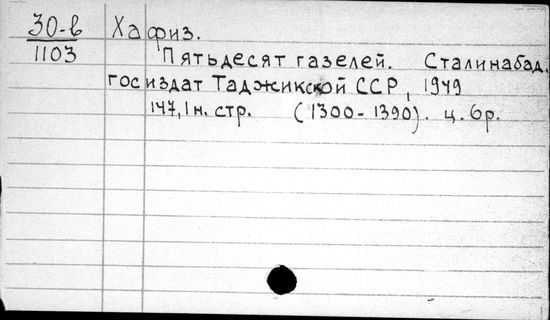 30-в Хафиз.
1103 Пятьдесят газелей. Сталинабад,
госиздат Таджикской ССР, 1949
147,1н. стр. (1300-1390). ц. 6р.